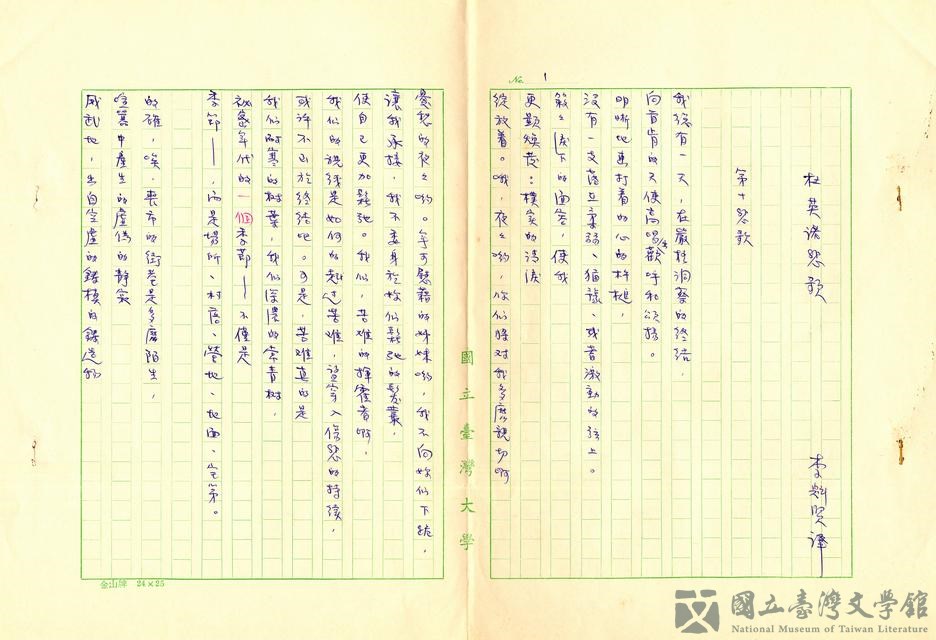 No. 1
杜英諾悲歌
李魁賢譯
第十悲歌
我終有一天,在嚴酷洞察的終結,
向首肯的天使高唱歡呼和頌揚。
明晰地 打着的心的杵槌,
沒有一支落在柔弱、猶豫、或者激動的弦上。
簌簌流下的面容,使我
更顯煥發:樸實的清淚
綻放着。哦,夜夜喲,你們將對我多麽親切啊
憂愁的夜夜喲。無可慰藉的姊妹喲,我不向妳們下跪,
讓我承接,我不委身於妳們鬆弛的髮叢,
使自己更加鬆弛。我們,苦難的揮霍者啊,
我們的視綫是如何的越过苦難,望穿入傷悲的持續,
或許不止於終結吧。可是,苦難真的是
我們耐寒的樹葉,我們深濃的常青樹,
祕密年代的一個季節——不僅是
季節——,而是場所、村居、營地、地面、宅第。
的確,唉,喪市的街巷是多麽陌生,
喧囂中產生的虛偽的靜寂
威武地,出自空虛的鑄模的鑄造物
國立臺灣大學
金山牌 24×25
國立臺灣文學館
National Museum of Taiwan Literature